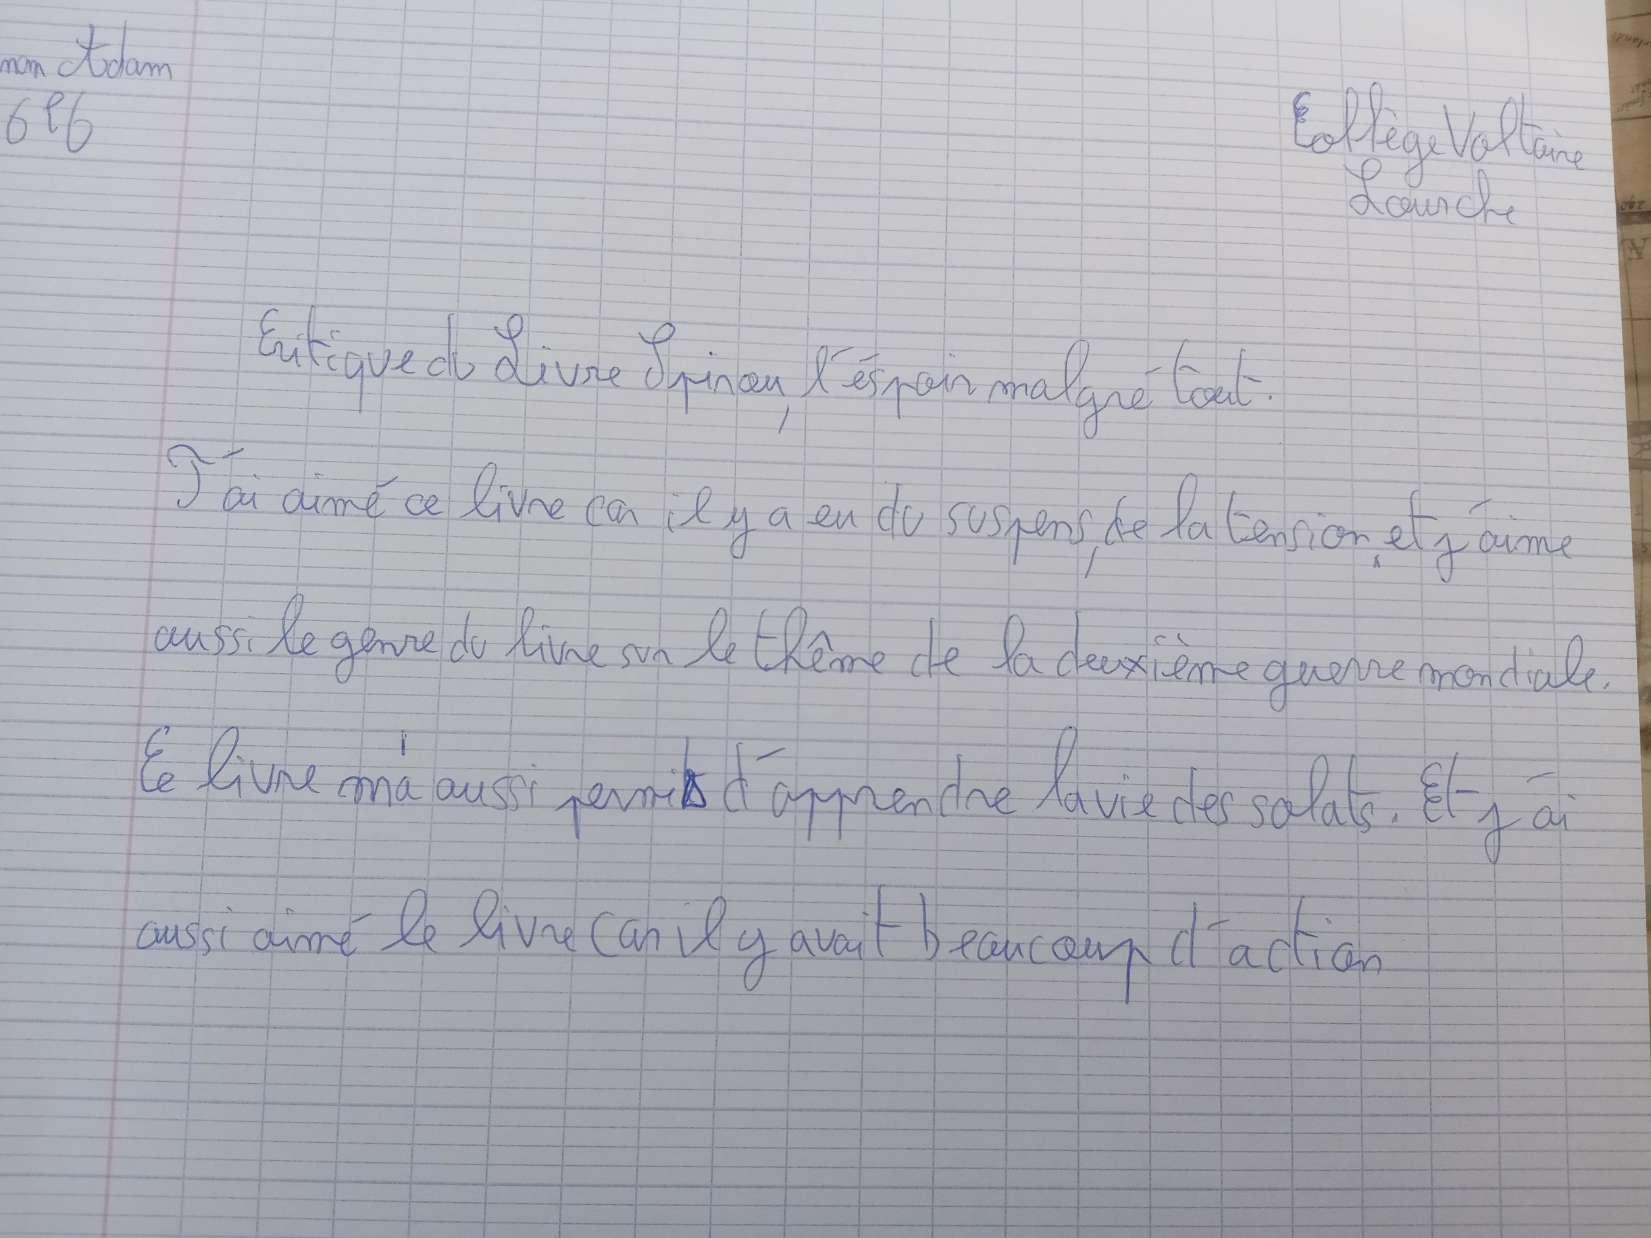 Adam
6e6
Collège Voltaire
Lourche
Critique du Livre Spirou, l'éspoir malgré tout.
J'ai aimé ce livre car il y a eu du suspens, de la tension, et j'aime
aussi le genre du livre sur le thême de la deuxième guerre mondiale.
Ce livre m'a aussi permis d'apprendre la vie des soldats. Et j'ai
aussi aimé le livre car il y avait beaucoup d'action